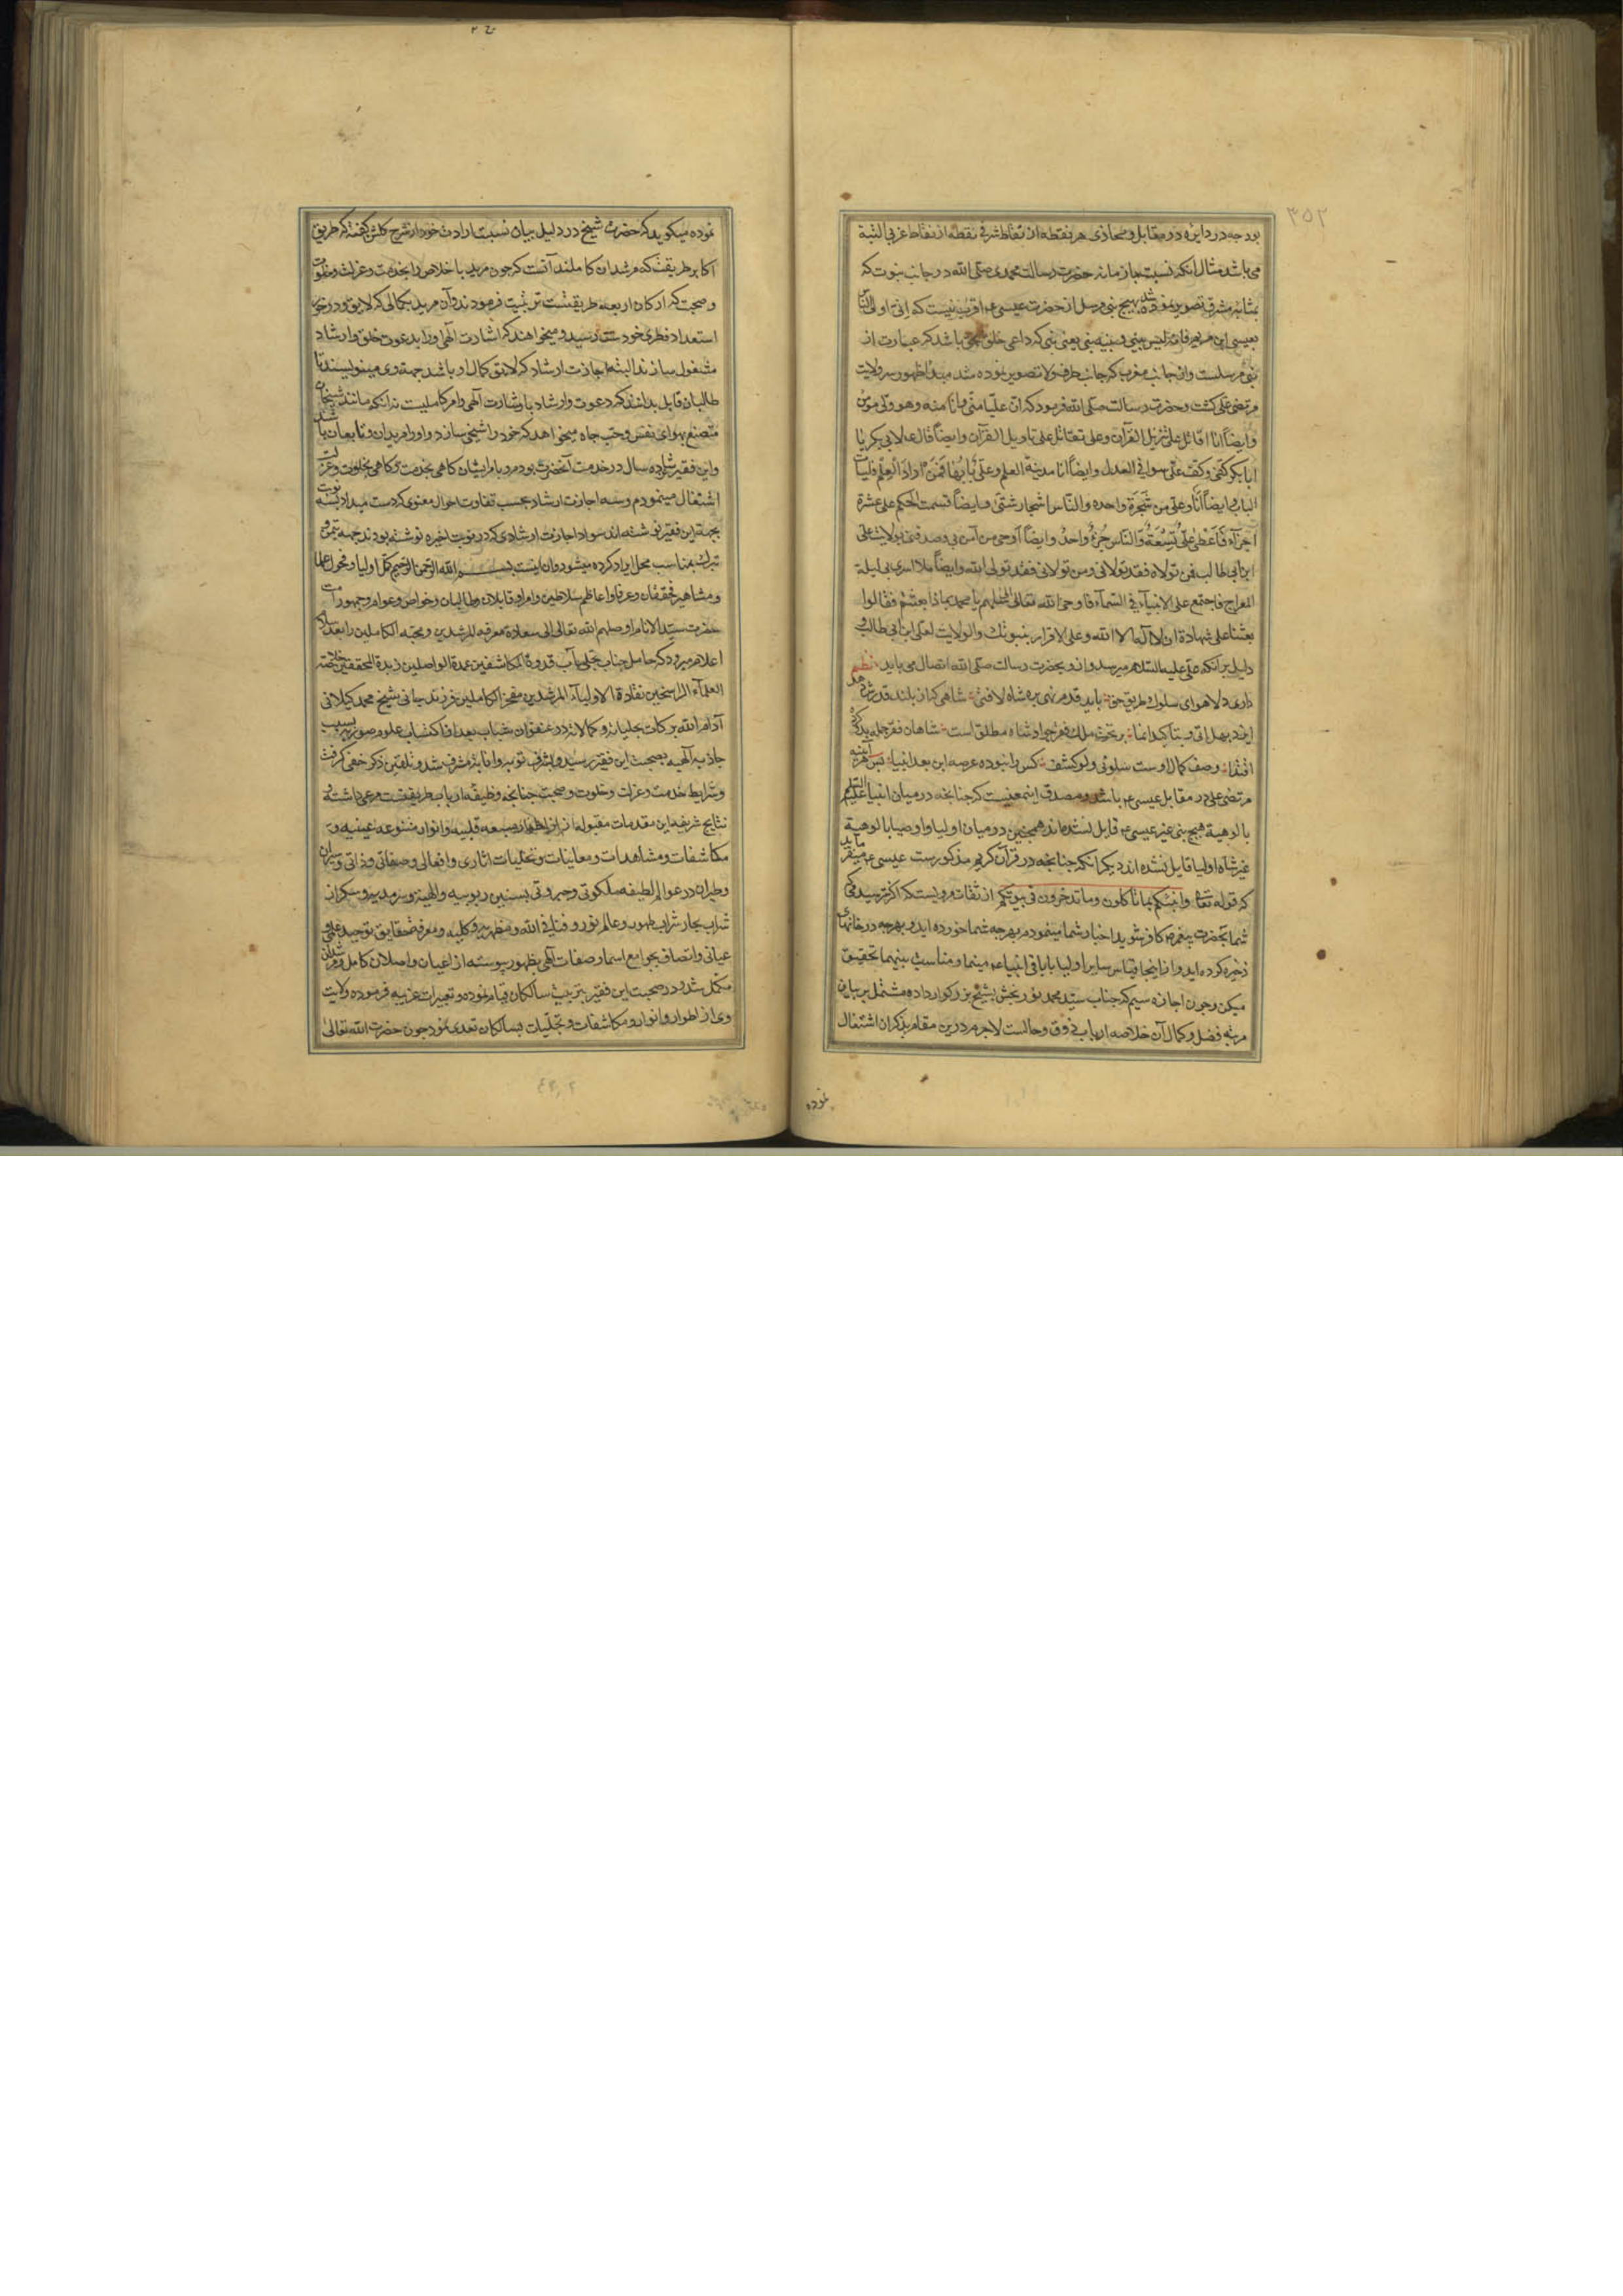 ۳۵۲
بود چه در دایره در مقابل و محاذی هر نقطه از نقاط شرقی نقطه از نقاط غربی البتة
می باشد مثال آنکه نسبت با زمانه حضرت رسالت محمدی صلی الله در جانب نبوت که
بمثابه مشرق تصویر نموده شد هیچ نبی مرسل از حضرت عیسی ع اقرب نیست که انی اولی الناس
بعیسی ابن مریم فانه لیس بینی و بینه نبی یعنی نبی که داعی خلق بحق باشد که عبارت از
نبی مرسلست و از جانب مغرب که جانب طرف ولا تصویر نموده شد مبدا ظهور سر ولایت
مرتضی علی گشت و حضرت رسالت صلی الله فرمود که ان علیا منی وانا منه وهو ولی مومن
وایضاً انا اقاتل علی تنزیل القرآن وعلی تقاتل علی تاویل القرآن وایضاً قال ع لابی بکر یا
ابابکر کفی وکف علی سوا فی العدل وایضاً انا مدینة العلم وعلی بابها فمن اراد العلم فلیات
الباب وایضاً انا وعلی من شجرة واحده والناس اشجار شتی وایضاً قسمت الحکم علی عشرة
اجزآء فاعطی علی تسعة والناس جزء واحد وایضاً اوحی من آمن بی وصدقنی بولایت علی
ابن ابی طالب فمن تولاه فقد تولانی ومن تولانی فقد تولی الله وایضاً لما اسری بی لیلة
المعراج فاجتمع علی الانبیآء فی السمآء فاوحی الله تعالی الی سلهم یا محمد بماذا بعثتم فقالوا
بعثنا علی شهادة ان لا اله الا الله وعلی الاقرار بنبوتک والولایت لعلی ابن ابی طالب و
دلیل بر آنکه علی علیه السلام میرسد و ازو بحضرت رسالت صلی الله اتصال می یابد نظم
داری دلا هوای سلوک طریق حق باید قدم نهی بره شاه لافتی شاهی که از بلند قدرش
ایزد بهل اتی و بتاکید انما بر تخت ملک فقر چو او شاه مطلق است شاهان فقر جمله بدو کرده
اقتدا وصف کمال اوست سلونی ولو کشف کس را نبوده عرصه این بعد انبیا پس هر آینه
مرتضی علی در مقابل عیسی ع باشد و مصدق اینمعنیست که چنانچه در میان انبیا علیهم السلام
بالوهیة هیچ نبی غیر عیسی ع قابل نشده اند همچنین در میان اولیا و اوصیا بالوهیة
غیر شاه اولیا قایل نشده اند دیگر آنکه چنانچه در قرآن کریم مذکورست عیسی ع میفرماید
که قوله تعا وانبئکم بما تاکلون وما تدخرون فی بیوتکم از ثقات مرویست که اکثر
شما بحضرت پیغمبر کافر شوید اخبار شما مینمودم بهرچه شما خورده اید و بهرچه در خانهای
ذخیره کرده اید و از اینجا قیاس سایر اولیا با باقی انبیا ع مینما و مناسب بینهما تحقیق
میکن و چون اجازه سیم که جناب سید محمد نوربخش بشیخ بزرگوار داده مشتمل بر بیان
مرتبه فضل و کمال آن خلاصه ارباب ذوق و حالست لاجرم درین مقام بذکر آن اشتغال
نموده
نموده میگوید که حضرت شیخ در دلیل بیان نسبت ارادت خود از شرح گلشن گفته که طریق
اکابر طریقت که مرشدان کاملند آنست که چون مرید با خلاص را بخدمت و عزلت و خلوت
و صحبت که ارکان اربعه طریقتست تربیت فرمودند و آن مرید بکمالی که لایق و درخور
استعداد فطری خودست رسید و میخواهند که اشارت الهی او را بدعوت خلق و ارشاد
مشغول سازند البته اجازت ارشاد که لایق کمال او باشد جهة وی مینویسند تا
طالبان قابل بدانند که دعوت و ارشاد باشارت الهی و امر کاملیست نه آنکه مانند شیخان
متصنع بهوای نفس و حب جاه میخواهد که خود را شیخی سازد و او را مریدان و تابعان باشد
و این فقیر شانزده سال در خدمت آنحضرت بودم و بامر ایشان گاهی بخدمت و گاهی بخلوت و عزلت
اشتغال مینمودم و سه اجازت ارشاد بحسب تفاوت احوال معنوی که دست میداد بسه نوبت
بجهة این فقیر نوشته اند سواد اجازت ارشادی که در نوبت اخیره نوشته بودند جهة تیمن و
تبرک بمناسب محل ایراد کرده میشود و ان اینست بسم الله الرحمن الرحیم کمل اولیا و فحول علما
و مشاهیر محققان و عرفا و اعاظم سلاطین و امرا و قابلان و طالبان و خواص و عوام و جمهور امت
حضرت سید الانام اوصلهم الله تعالی الی سعادة معرفة المرشدین و محبة الکاملین را بعد سلام
اعلام میرود که حامل جناب تجلی مآب قدوة المکاشفین عمدة الواصلین زبدة المحققین خلاصة
العلمآء الراسخین نقاوة الاولیآء المرشدین مفخر الکاملین فرزند جانی شیخ محمد گیلانی
ادام الله برکات تجلیاته و کمالاته در عنفوان شباب بعد از اکتساب علوم صوریه بسبب
جاذبه الهیه بصحبت این فقیر رسید و بشرف توبه و انابه مشرف شد و تلقین ذکر خفی گرفت
و شرایط خدمت و عزلت و خلوت و صحبت چنانچه وظیفه ارباب طریقتست مرعی داشته و
نتایج شریفه این مقدمات مقبوله از اطوار سبعه قلبیه و انوار متنوعه غیبیه و
مکاشفات و مشاهدات و معاینات و تجلیات اثاری و افعالی و صفاتی و ذاتی و سیران
و طیران در عوالم لطیفه ملکوتی و جبروتی
شراب بحار شراب طهور و عالم نور و فنا فی الله و مظهریت کلیه و معرفت حقایق توحید علمی و
عیانی و اتصاف بجوامع اسما و صفات الهی بظهور پیوسته از اعیان واصلان کامل و مرشدان
مکمل شد و در صحبت این فقیر بتربیت سالکان قیام نموده و تعبیرات غریبه فرموده ولایت
وی از اطوار و انوار و مکاشفات و تجلیات بسالکان تعدی نمود چون حضرت الله تعالی